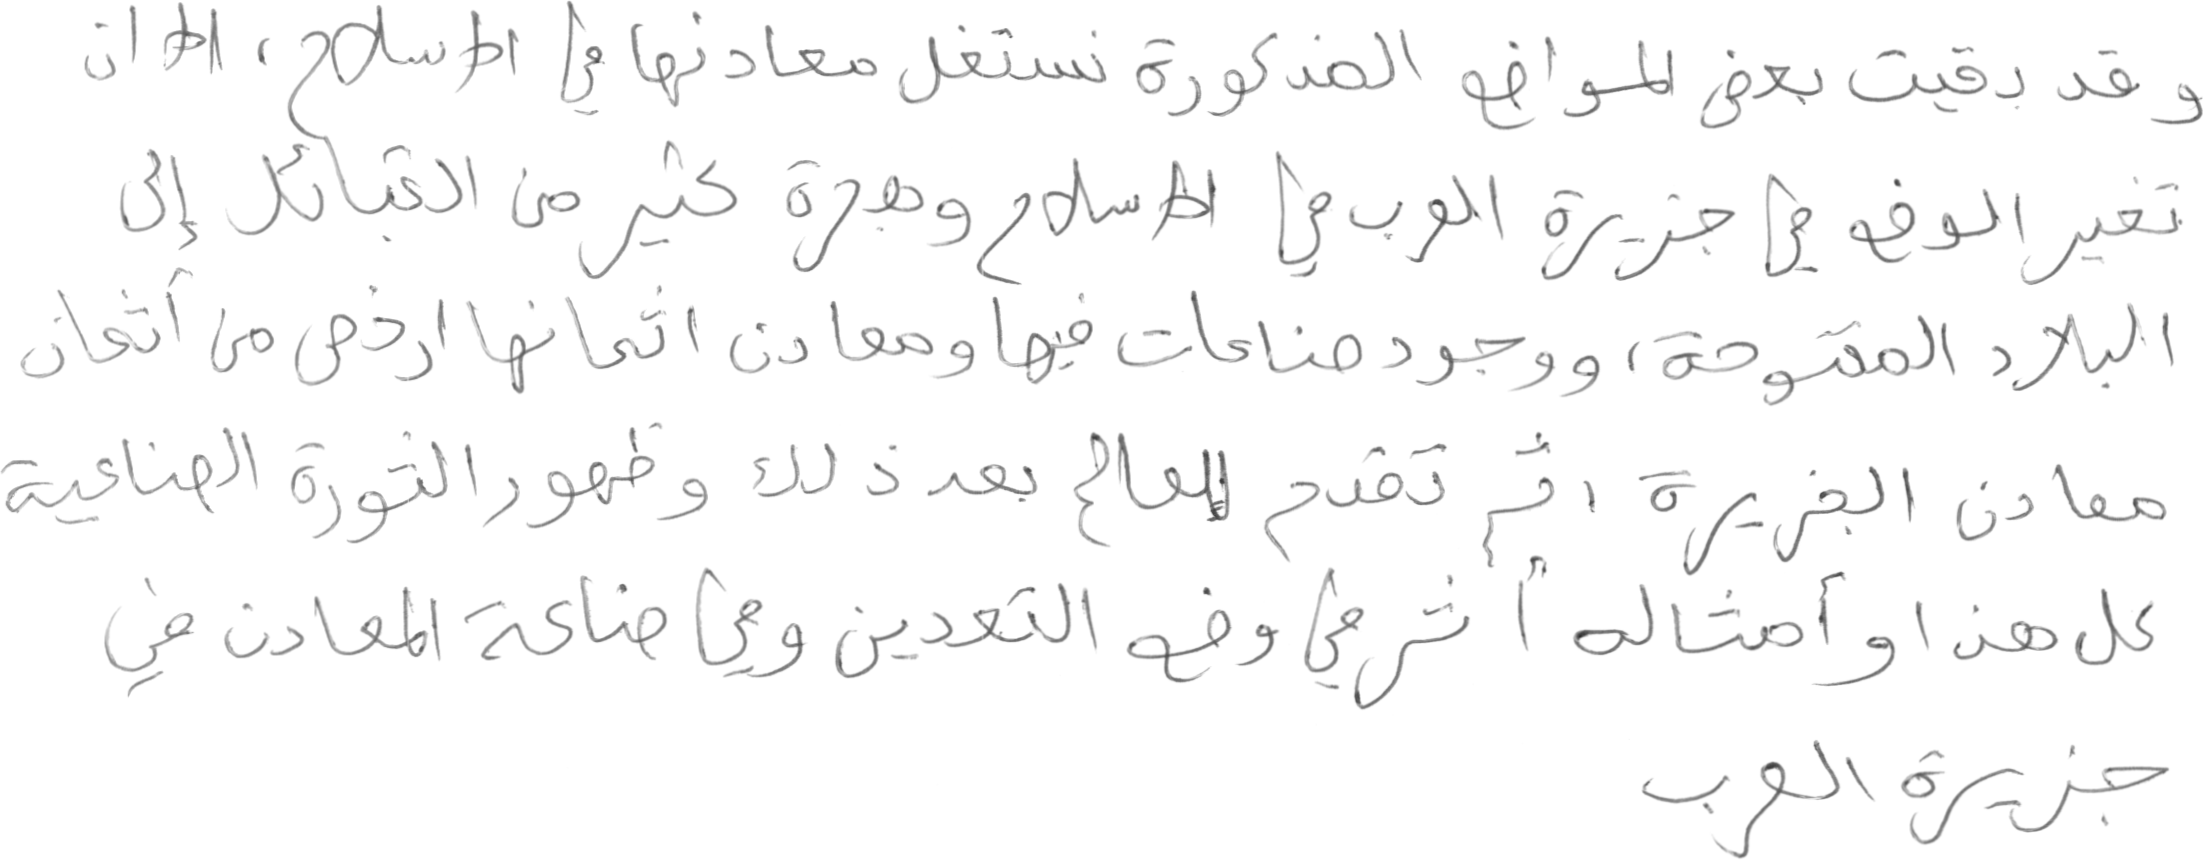 وقد بقيت بعض المواضع المذكورة نستغل معادنها في الإسلام، الا ان
تغير الوضع في جزيرة العرب في الاسلام وهجرة كثير من القبائل إلى
البلاد المفتوحة، ووجود صناعات فيها ومعادن اثمانها ارخص من أثمان
معادن الجزيرة، ثم تقدم العالم بعد ذلك وظهور الثورة الصناعية
كل هذا وأمثاله أثر في وضع التعدين وفي صناعة المعادن في
جزيرة العرب